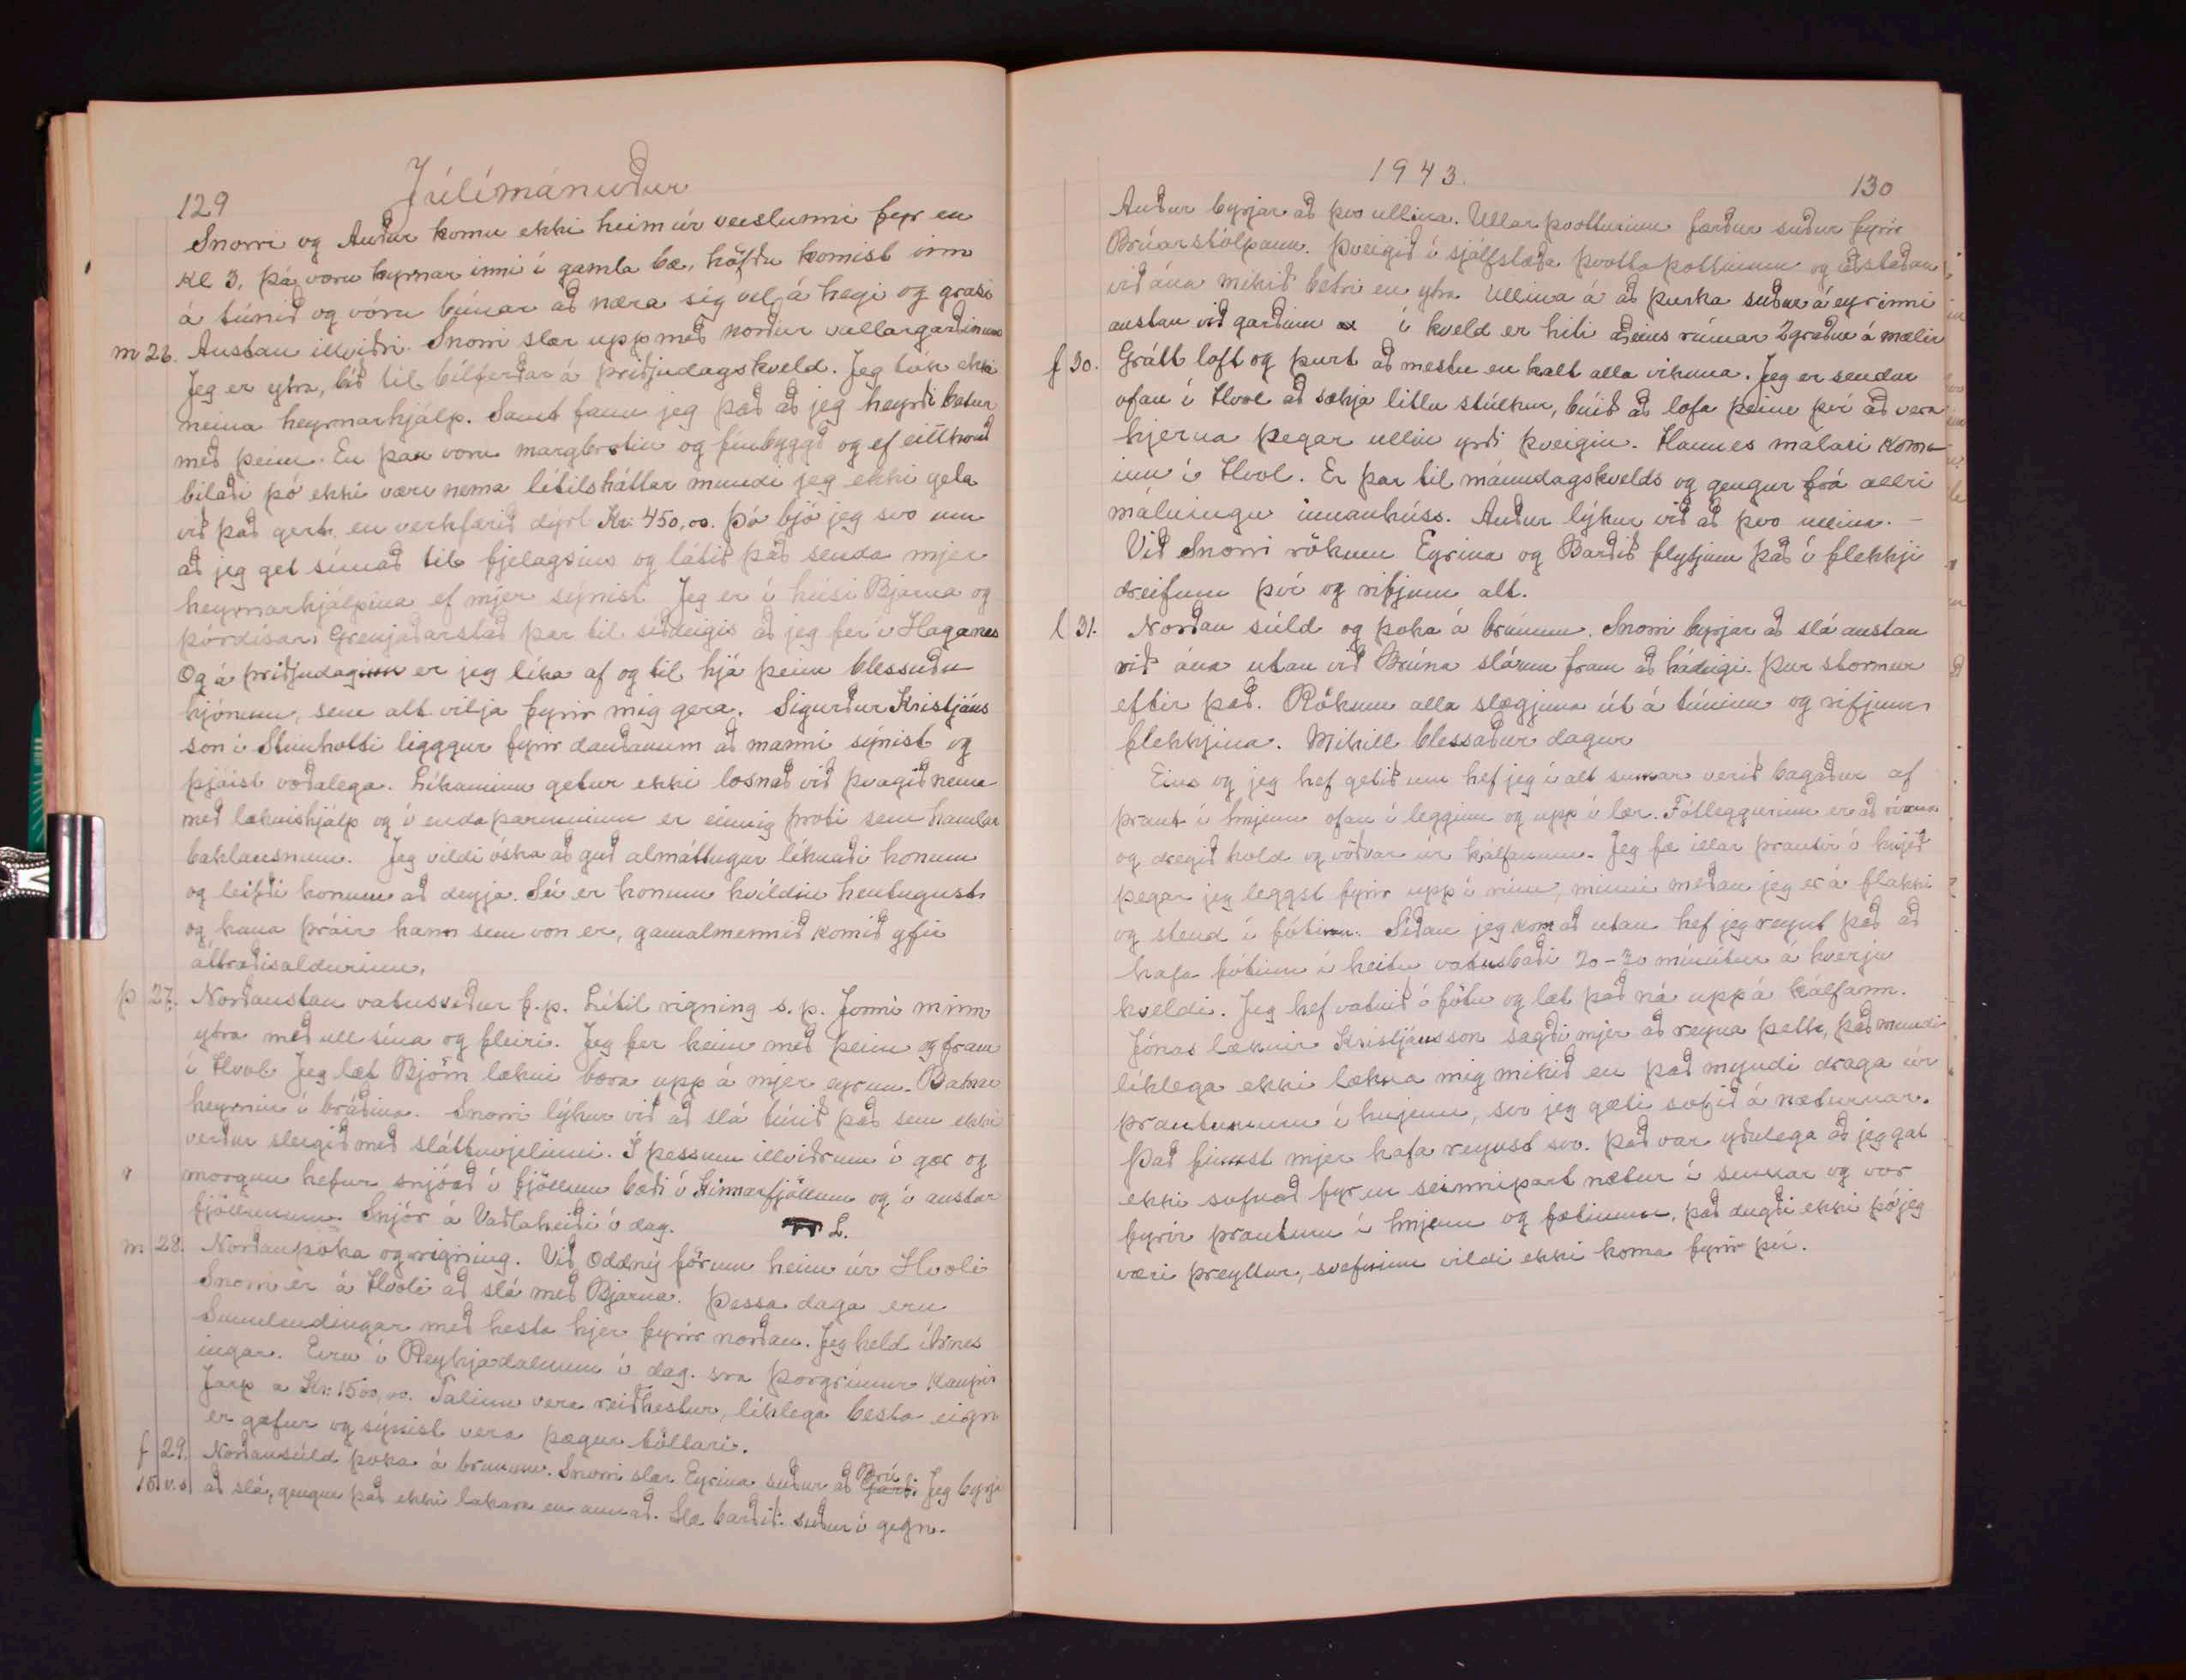 Júlímánuður
129
Snorri og Auður komu ekki heim úr veislunni fyr en
Kl 3, þá voru kyrnar inni í gamla bæ, höfðu komist inn
á túnið og vóru búnar að næra sig vel á heyi og grasi
m 26. Austan illviðri. Snorri slær upp með norður vallargarðinum
Jeg er ytra, bíð til bílferðar á þriðjudagskveld. Jeg tók ekki
neina heyrnarhjálp. Samt fann jeg það að jeg heyrði betur
með þeim. En þau voru margbrotin og fínbyggð og ef eitthvað
bilaði þó ekki væri nema lítilsháttar mundi jeg ekki geta
við það gert, en verkfærið dýrt Kr. 450,00. Þó bjó jeg svo um
að jeg get símað til fjelagsins og látið það senda mjer
heyrnarhjálpina ef mjer sýnist Jeg er í húsi Bjarna og
Þórdísar, Grenjaðarstað þar til síðdeigis að jeg fer í Haganes
Og á þriðjudaginn er jeg líka af og til hjá þeim blessuðu
hjónum, sem alt vilja fyrir mig gera. Sigurður Kristjáns
son í Steinholti ligggur fyrir dauðanum að manni sýnist og
þjáist voðalega. Líkaminn getur ekki losnað við þvagið nema
með læknishjálp og í endaþarminum er einnig þroti sem hamlar
baklausnum. Jeg vildi óska að guð almáttugur líknaði honum
og leifði honum að deyja. Sú er honum hvíldin hentugust
og hana þráir hann sem von er, gamalmennið komið yfir
áttræðisaldurinn.
þ 27. Norðaustan vatnsveður f.p. Lítil rigning s.p. Jonni minn
ytra með ull sína og fleiri. Jeg fer heim með þeim og fram
í Hvol Jeg læt Björn lækni bora upp á mjer eyrun. Batnar
heyrnin í bráðina. Snorri lýkur við að slá túnið það sem ekki
verður sleigið með sláttuvjelinni. Í þessum illviðrum í gær og
morgun hefur snjóað í fjöllum bæði í Kinnarfjöllum og í austur
fjöllunum. Snjór á Vaðlaheiði í dag. L.
m 28. Norðanþoka og rigning. Við Oddný förum heim úr Hvoli
Snorri er á Hvoli að slá með Bjarna. Þessa daga eru
Sunnlendingar með hesta hjer fyrir norðan. Jeg held Árnes
ingar. Eru í Reykjadalnum í dag. sra Þorgrímur kaupir
Jarp a Kr: 1500,00. Talinn vera reiðhestur, líklega besta eign
er gæfur og sýnist vera þægur töltari.
f 29. Norðansúld þoka á brunum. Snorri slær Eyrina suður að Brú Jeg byrja
15 v.s. að slá, gengur það ekki lakara en annað. Slæ barðið suður í gegn.
1943.
130
Auður byrjar að þvo ullina. Ullarþvotturinn færður suður fyrir
Brúarstólpann. Þveigið í sjálfstæða þvottapottinum og aðstaðan
við ána mikið betri en ytra Ullina á að þurka suður á eyrinni
austan við garðinn í kveld er hiti aðeins rúmar 2 gráður á mælir
f 30. Grátt loft og þurt að mestu en kalt alla vikuna. Jeg er sendur
ofan í Hvol að sækja litlu stúlkur, búið að lofa þeim því að vera
hjerna þegar ullin yrði þveigin. Hannes málari koma
inn í Hvol. Er þar til mánudagskvelds og gengur frá allri
málningu innanhúss. Auður lýkur við að þvo ullina. –
Við Snorri rökum Eyrina og Barðið flytjum það í flekkji
dreifum því og rifjum alt.
l 31. Norðan súld og þoka á brúnum. Snorri byrjar að slá austan
við ána utan við Brúna slárum fram að hádeigi. Þur stormur
eftir það. Rökum alla slægjuna út á túninu og rifjum
flekkjina. Mikill blessaður dagur
Eins og jeg hef getið um hef jeg í alt sumar verið bagaður af
þraut í hnjenu ofan í legginn og upp í lær. Fótleggurinn er að rírna
og dregið hold og vöðvar úr kálfanum. Jeg fæ illar þrautir í hnjeð
þegar jeg leggst fyrir upp í rúm, minni meðan jeg er á flakki
og stend í fótinn. Síðan jeg kom að utan hef jeg reynt það að
hafa fótinn í heitu vatnsbaði 20-30 mínútur á hverju
kveldi. Jeg hef vatnið í fötu og læt það ná upp á kálfann.
Jónas læknir Kristjánsson sagði mjer að reyna þetta, það mundi
líklega ekki lækna mig mikið en það myndi draga úr
þrautunum í hnjenu, svo jeg gæti sofið á næturnar.
Það finnst mjer hafa reynst svo. Það var yðulega að jeg gat
ekki sofnað fyr en seinnipart nætur í sumar og vor
fyrir þrautum í hnjenu og fætinum, það dugði ekki þó jeg
væri þreyttur, svefninn vildi ekki koma fyrir því.